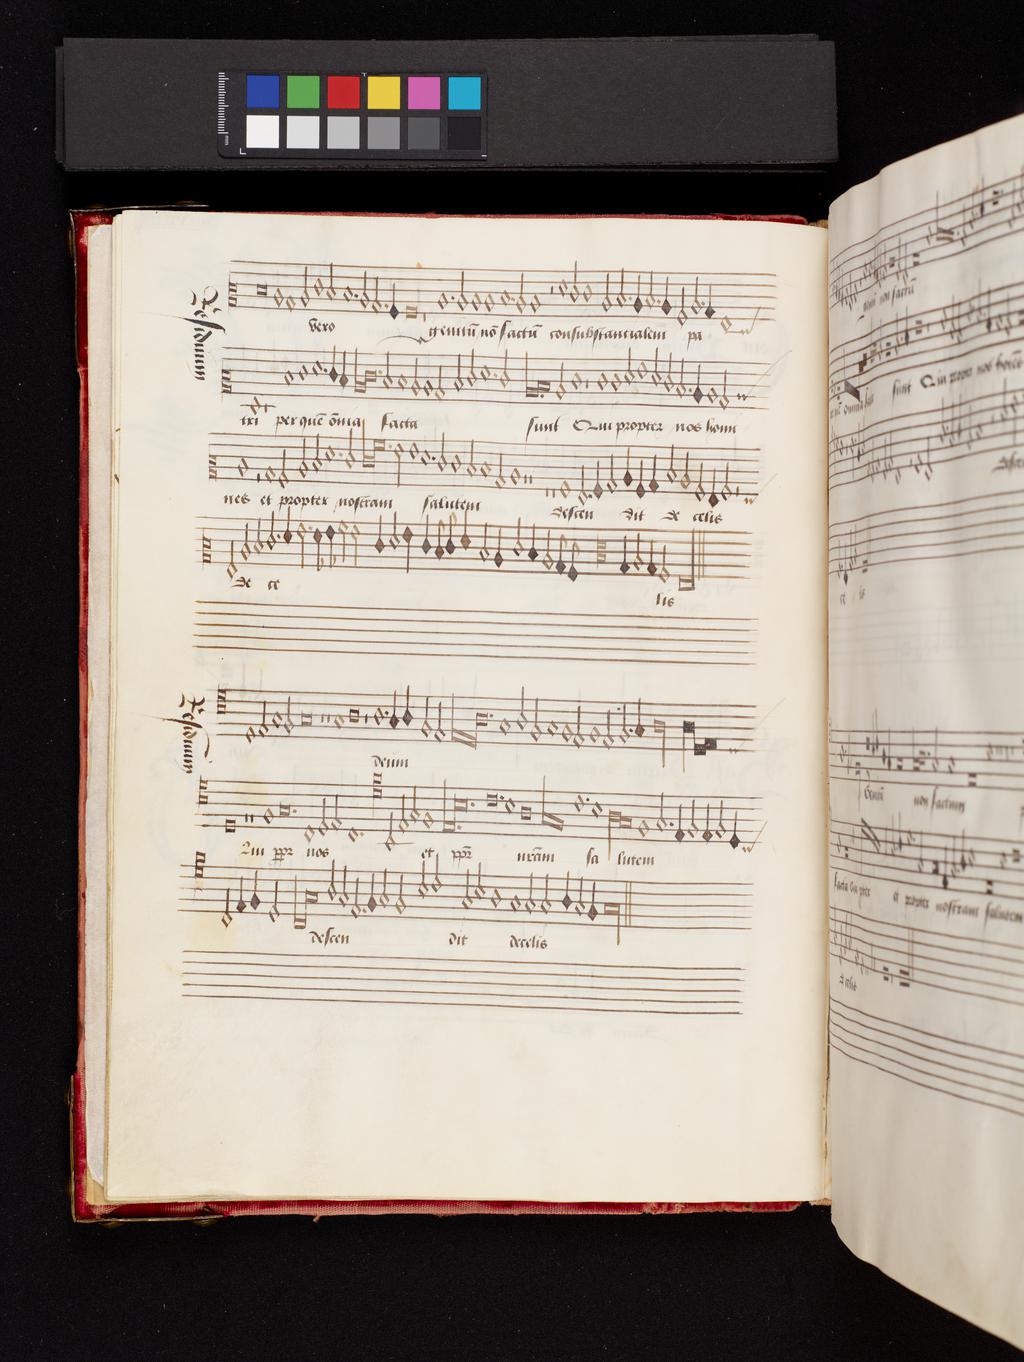 Residuum
vero genitū nō factū consubstantialem pa
tri per quē ōnia facta sunt Qui propter nos homi
nes et propter nostram salutem descen dit de celis
de ce lis
Residuum
deum
Qui ppr nos et ppr nrām sa lutem
descen dit decelis
non factū
sunt Qui propter nos hoīes
ce lis
Genitū non factum
et propter nostram salutem